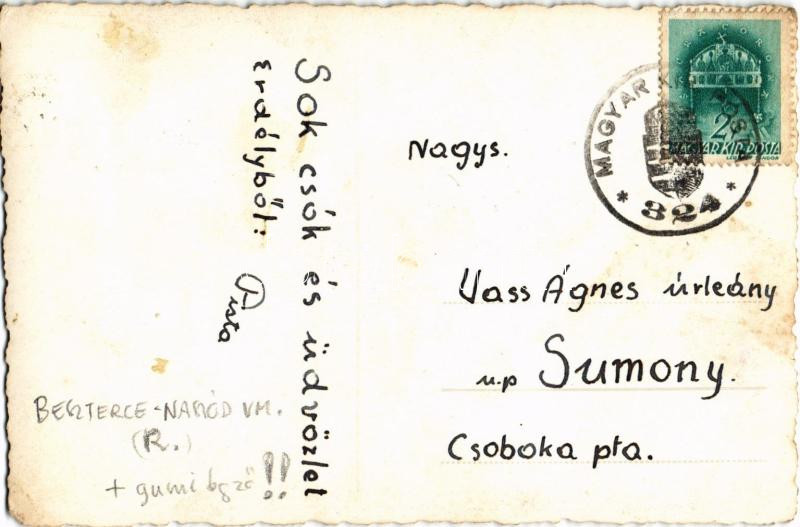 Sok csók és üdvözlet
Erdélyből:
Pista
Nagys.
Vass Ágnes úrleány
u.p Sumony.
Csoboka pta.
MAGYAR KIR. POSTA
* 324 *
MAGYAR KIR. POSTA
BESZTERCE-NASZÓD VM.
(R.)
+ gumi bgző!!